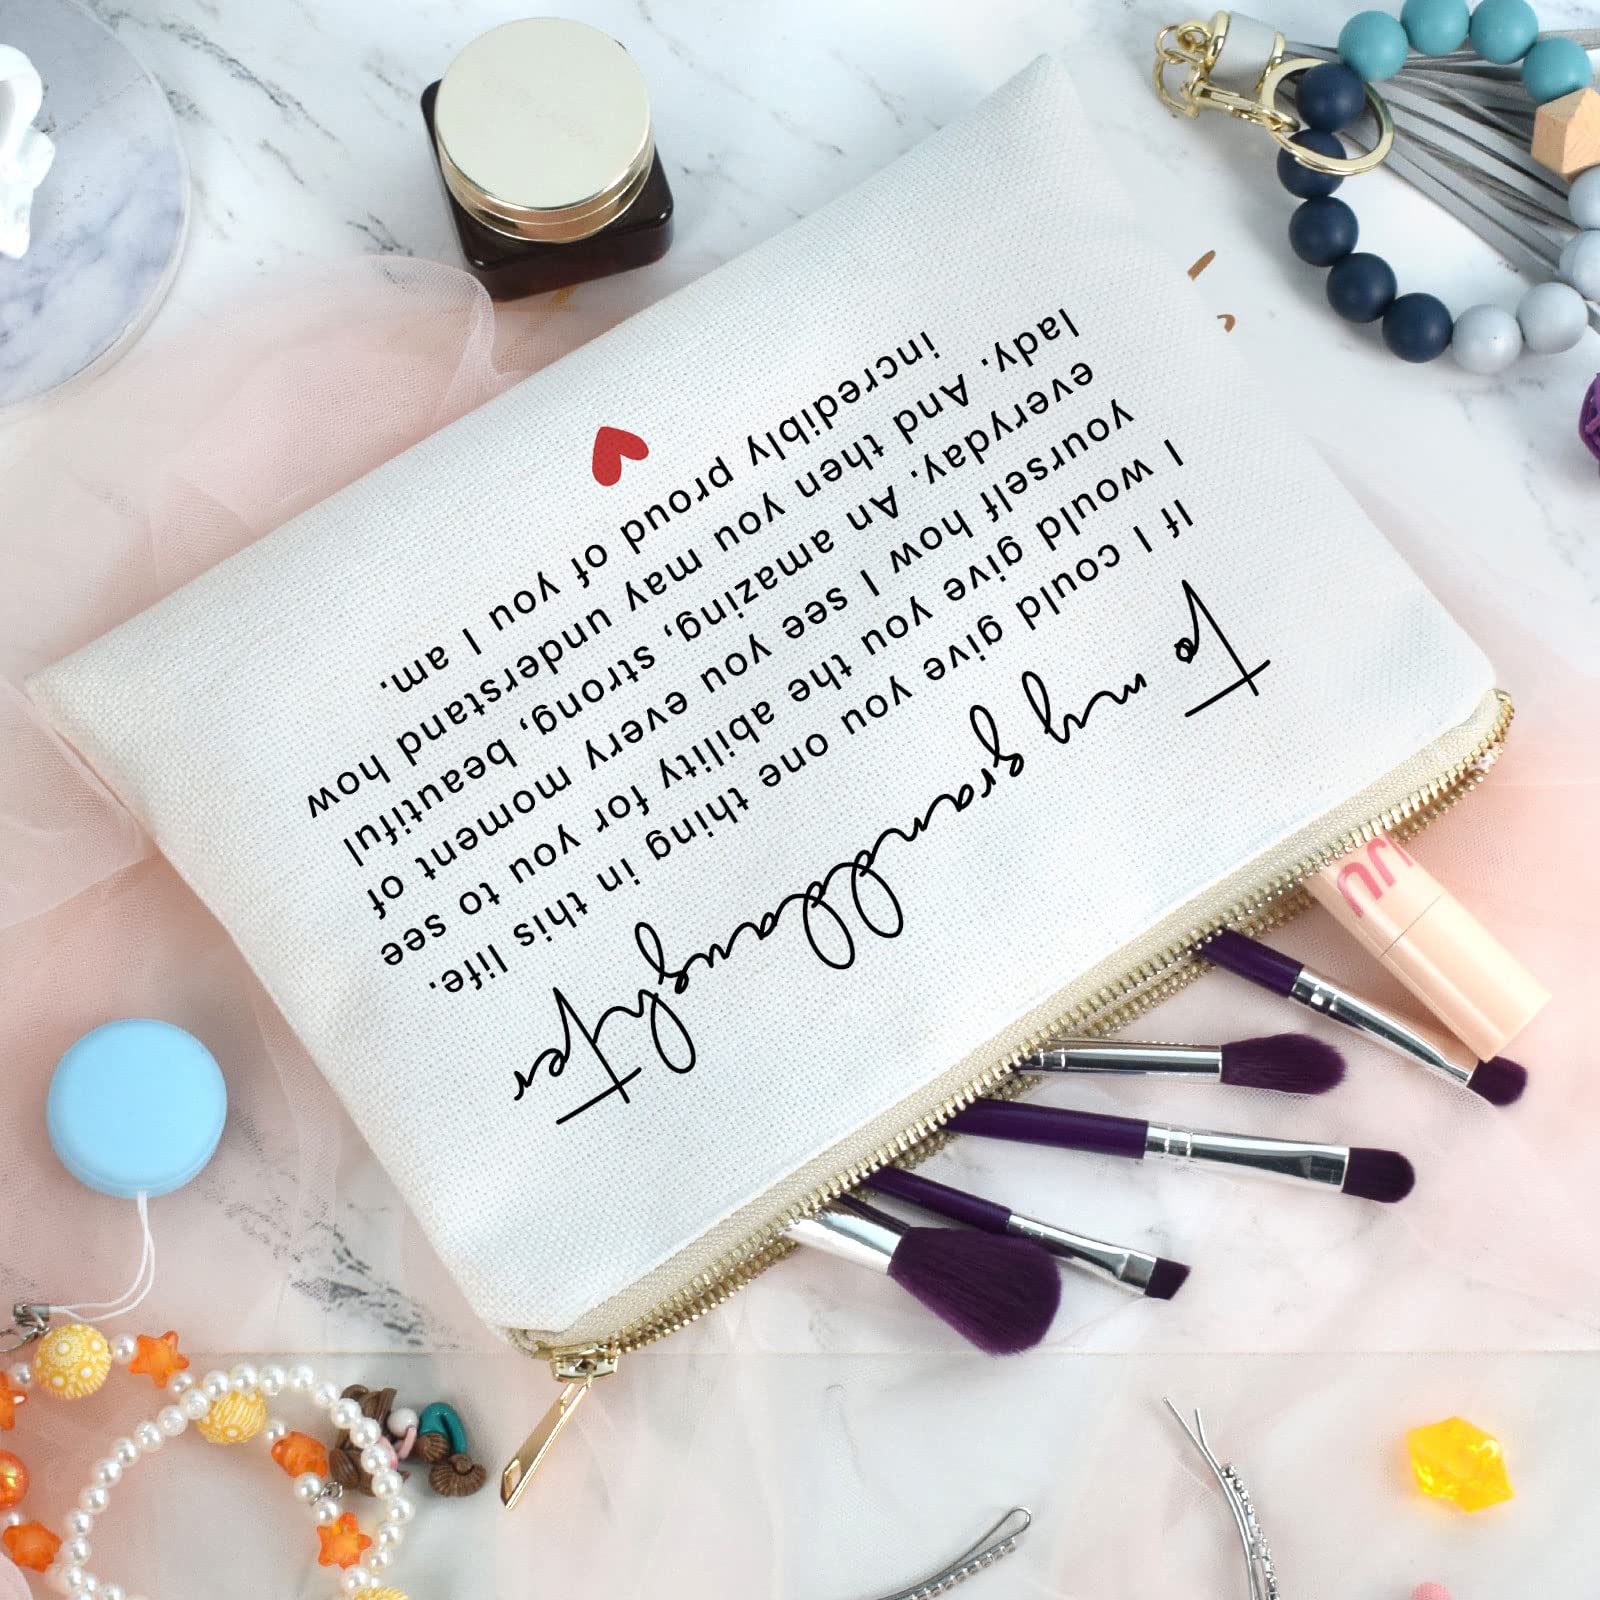 To my granddaughter
If I could give you one thing in this life.
I would give you the ability for you to see
yourself how I see you every moment of
everyday. An amazing, strong, beautiful
lady. And then you may understand how
incredibly proud of you I am.